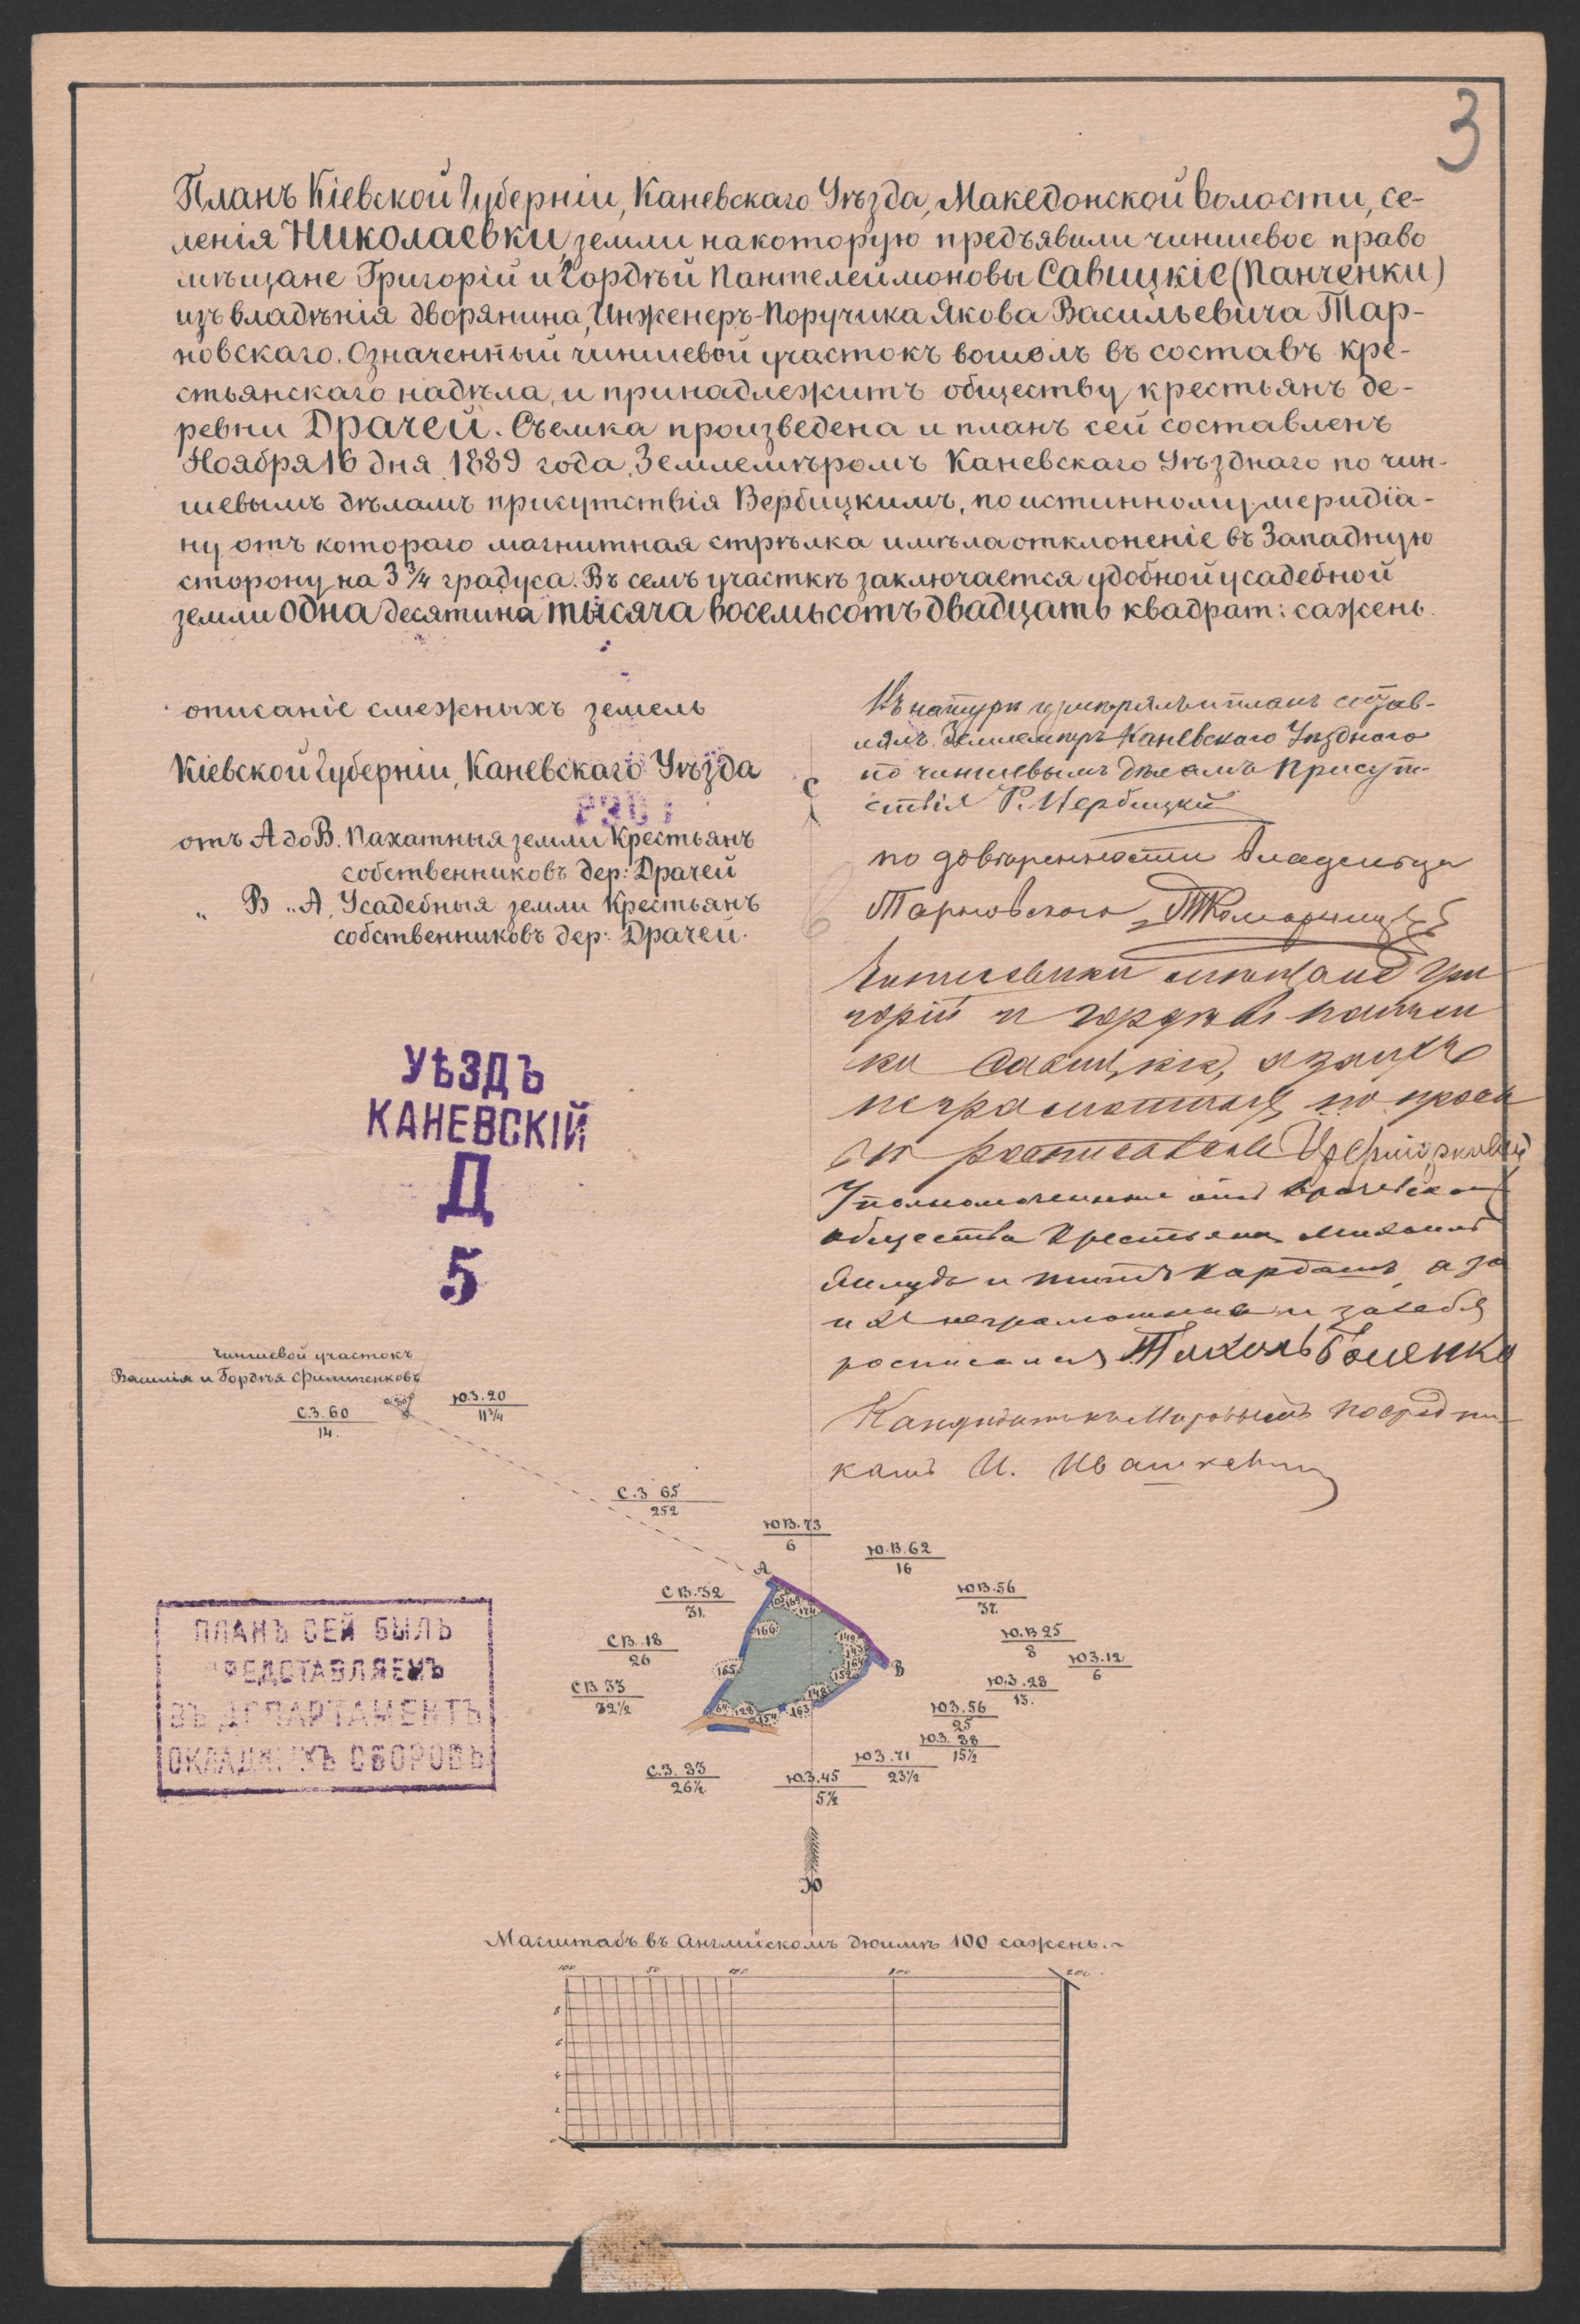 3
Планъ Кіевской Губерніи, Каневскаго Уѣзда, Македонской волости, се-
ленія Николаевки, земли на которую предъявили чиншевое право
мѣщане Григорій и Гордѣй Пантелеймоновы Савицкіе (Панченки)
изъ владѣнія дворянина, Инженеръ-Поручика Якова Васильевича Тар-
новскаго. Означенный чиншевой участокъ вошолъ въ составъ кре-
стьянскаго надѣла, и принадлежитъ обществу крестьянъ де-
ревни Драчей. Съемка произведена и планъ сей составленъ
Ноября 16 дня 1889 года, Землемѣромъ Каневскаго Уѣзднаго по чин-
шевымъ дѣламъ присутствія Вербицкимъ, по истинному меридіа-
ну отъ котораго магнитная стрѣлка имѣла отклоненіе въ Западную
сторону на 3 3/4 градуса. Въ семъ участкѣ заключается удобной усадебной
земли одна десятина тысяча восемьсотъ двадцать квадрат: сажень.
описаніе смежныхъ земель
Кіевской Губерніи, Каневскаго Уѣзда
отъ А до В. Пахатныя земли Крестьянъ
собственниковъ дер: Драчей
„ В „ А, Усадебныя земли Крестьянъ
собственниковъ дер: Драчей.
Въ натурѣ измѣрялъ и планъ состав-
лялъ Землемѣръ Каневскаго Уѣзднаго
по чиншевымъ дѣламъ Присут-
ствія Вербицкій
по довѣренности владельца
Тарновского
мѣщане Гри
горій и Гордѣй Панчен
ки Савицкіе, а за ихъ
неграмотныхъ по прось
бѣ росписался
Уполномоченные отъ Драчевского
общества Крестьяне
и Титъ Кардашъ, а за
ихъ неграмотныхъ и за себя
росписался
Кандидатъ къ Мировымъ посредни-
камъ И. Ивашкевичъ
УѢЗДЪ
КАНЕВСКІЙ
Д
5
Чиншевой участокъ
Василія и Гордѣя Филипенковъ
С.З. 60
14.
Ю.З. 20
11 3/4
С.З 65
252
С
ЮВ. 73
6
Ю.В. 62
16
ЮВ. 56
37.
Ю.В 25
8
ЮЗ. 12
6
Ю.З. 28
13.
ЮЗ. 56
25
Ю.З. 38
15 1/2
ЮЗ. 71
23 1/2
Ю.З. 45
5 1/2
С.З. 33
26 1/2
СВ 33
32 1/2
СВ. 18
26
СВ. 32
31.
А
В
166
165
174
149
143
164
152
148
163
154
128
64
ПЛАНЪ СЕЙ БЫЛЪ
РЕДСТАВЛЯЕМЪ
ВЪ ДЕПАРТАМЕНТЪ
ОКЛАДНЫХЪ СБОРОВЪ
Ю
Масштабъ въ Англійскомъ дюймѣ 100 сажень.
100 50 100 200
8
6
4
2